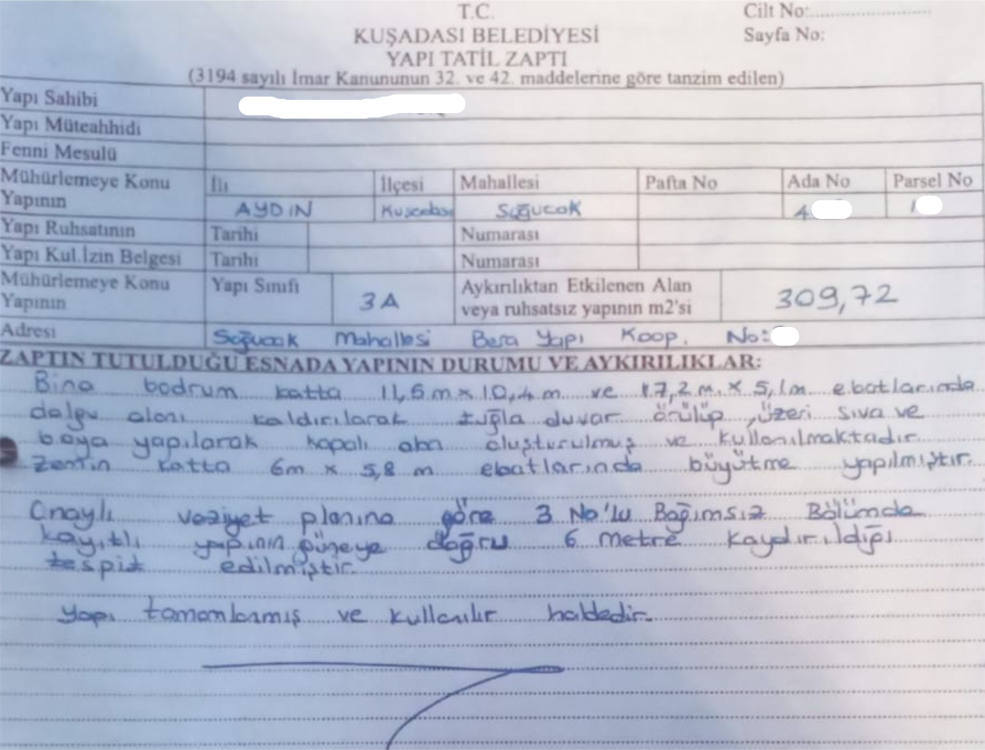 T.C.
Cilt No:
KUŞADASI BELEDİYESİ
Sayfa No:
YAPI TATİL ZAPTI
(3194 sayılı İmar Kanununun 32. ve 42. maddelerine göre tanzim edilen)
Yapı Sahibi
Yapı Müteahhidi
Fenni Mesulü
Mühürlemeye Konu Yapının İli İlçesi Mahallesi Pafta No Ada No Parsel No
AYDIN Kuşadası Soğucak 4 1
Yapı Ruhsatının Tarihi Numarası
Yapı Kul.İzin Belgesi Tarihi Numarası
Mühürlemeye Konu Yapının Yapı Sınıfı 3A Aykırılıktan Etkilenen Alan
veya ruhsatsız yapının m2'si 309,72
Adresi Soğucak Mahallesi Bera Yapı Koop. No:
ZAPTIN TUTULDUĞU ESNADA YAPININ DURUMU VE AYKIRILIKLAR:
Bina bodrum katta 11,6m x 10,4m ve 17,2m x 5,1m ebatlarında
dolgu alanı kaldırılarak tuğla duvar örülüp, üzeri sıva ve
boya yapılarak kapalı alan oluşturulmuş ve kullanılmaktadır.
Zemin katta 6m x 5,8m ebatlarında büyütme yapılmıştır.
Onaylı vaziyet planına göre 3 No'lu Bağımsız Bölümde
kayıtlı yapının güneye doğru 6 metre kaydırıldığı
tespit edilmiştir.
Yapı tamamlanmış ve kullanılır haldedir.